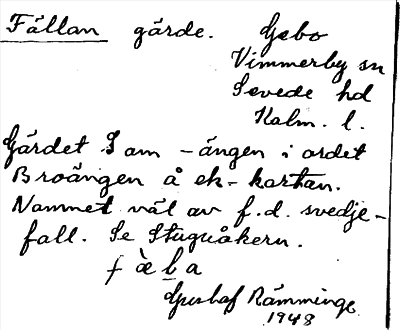 Fällan gärde. Gebo
Vimmerby sn
Sevede hd
Kalm. l.
Gärdet S om -ängen i ordet
Broängen å ek-kartan.
Namnet väl av f.d. svedje-
fall. Se Stuguåkern.
Gustaf Rämminge
1948